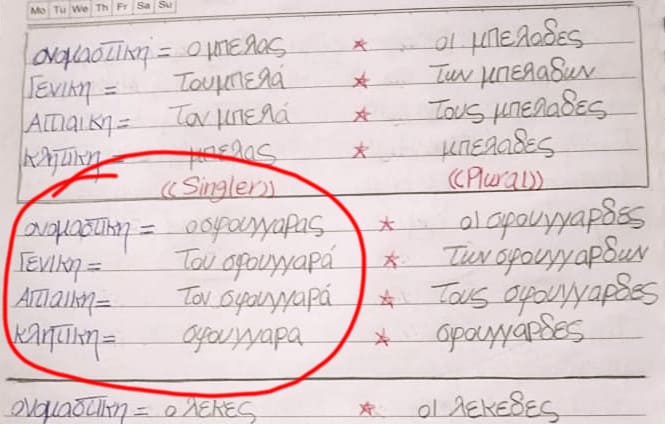 Mo Tu We Th Fr Sa Su
ονομαστική = ο μπελας * οι μπελαδες
Γενικη = Του μπελά * Των μπελαδων
Απιαικη = Τον μπελά * Τους μπελαδες
Κλητικη = μπελας * μπελαδες
((Singler)) ((Plural))
ονομαστικη = ο σφουγγαρας * οι σφουγγαρδες
Γενικη = Του σφουγγαρά * Των σφουγγαρδων
Απιαικη = Τον σφουγγαρά * Τους σφουγγαρδες
Κλητικη = σφουγγαρα * σφουγγαρδες
ονομαστικη = ο λεκες * οι λεκεδες